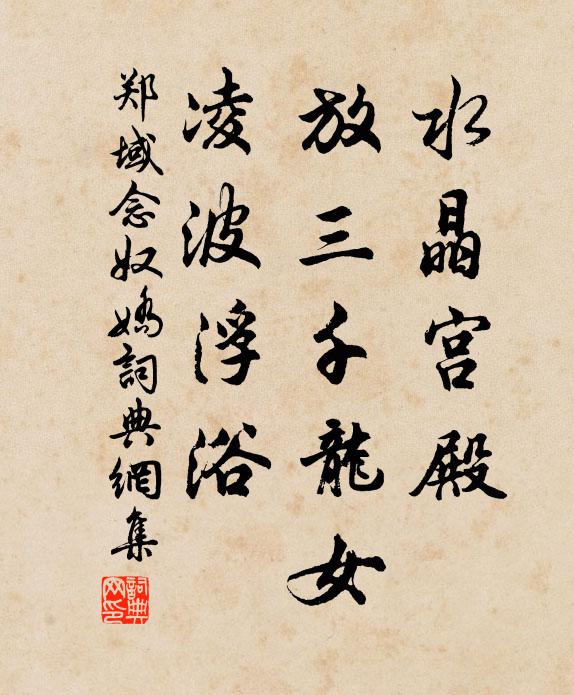 水晶宫殿
放三千龍女
凌波浮浴
郑域念奴嬌詞典網集
詞典
网印